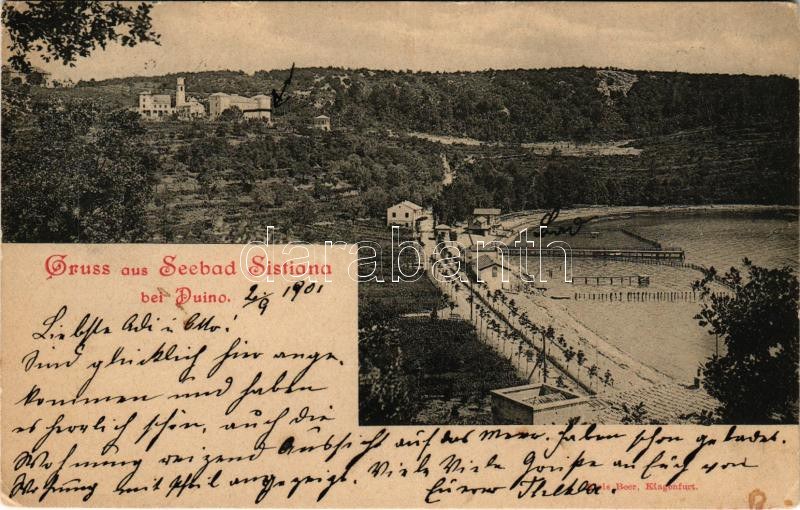 Bad
Gruss aus Seebad Sistiana
bei Duino. 2/9 1901
darabanth.com
Liebste Adi u Otto!
Sind glücklich hier ange-
kommen und haben
es herrlich schön, auch die
Wohnung reizend Aussicht auf das Meer. Haben schon gebadet.
Wohnung mit Pfeil angezeigt. Viele Viele Grüße an Euch von
Euerer Thekla.
Beer, Klagenfurt.